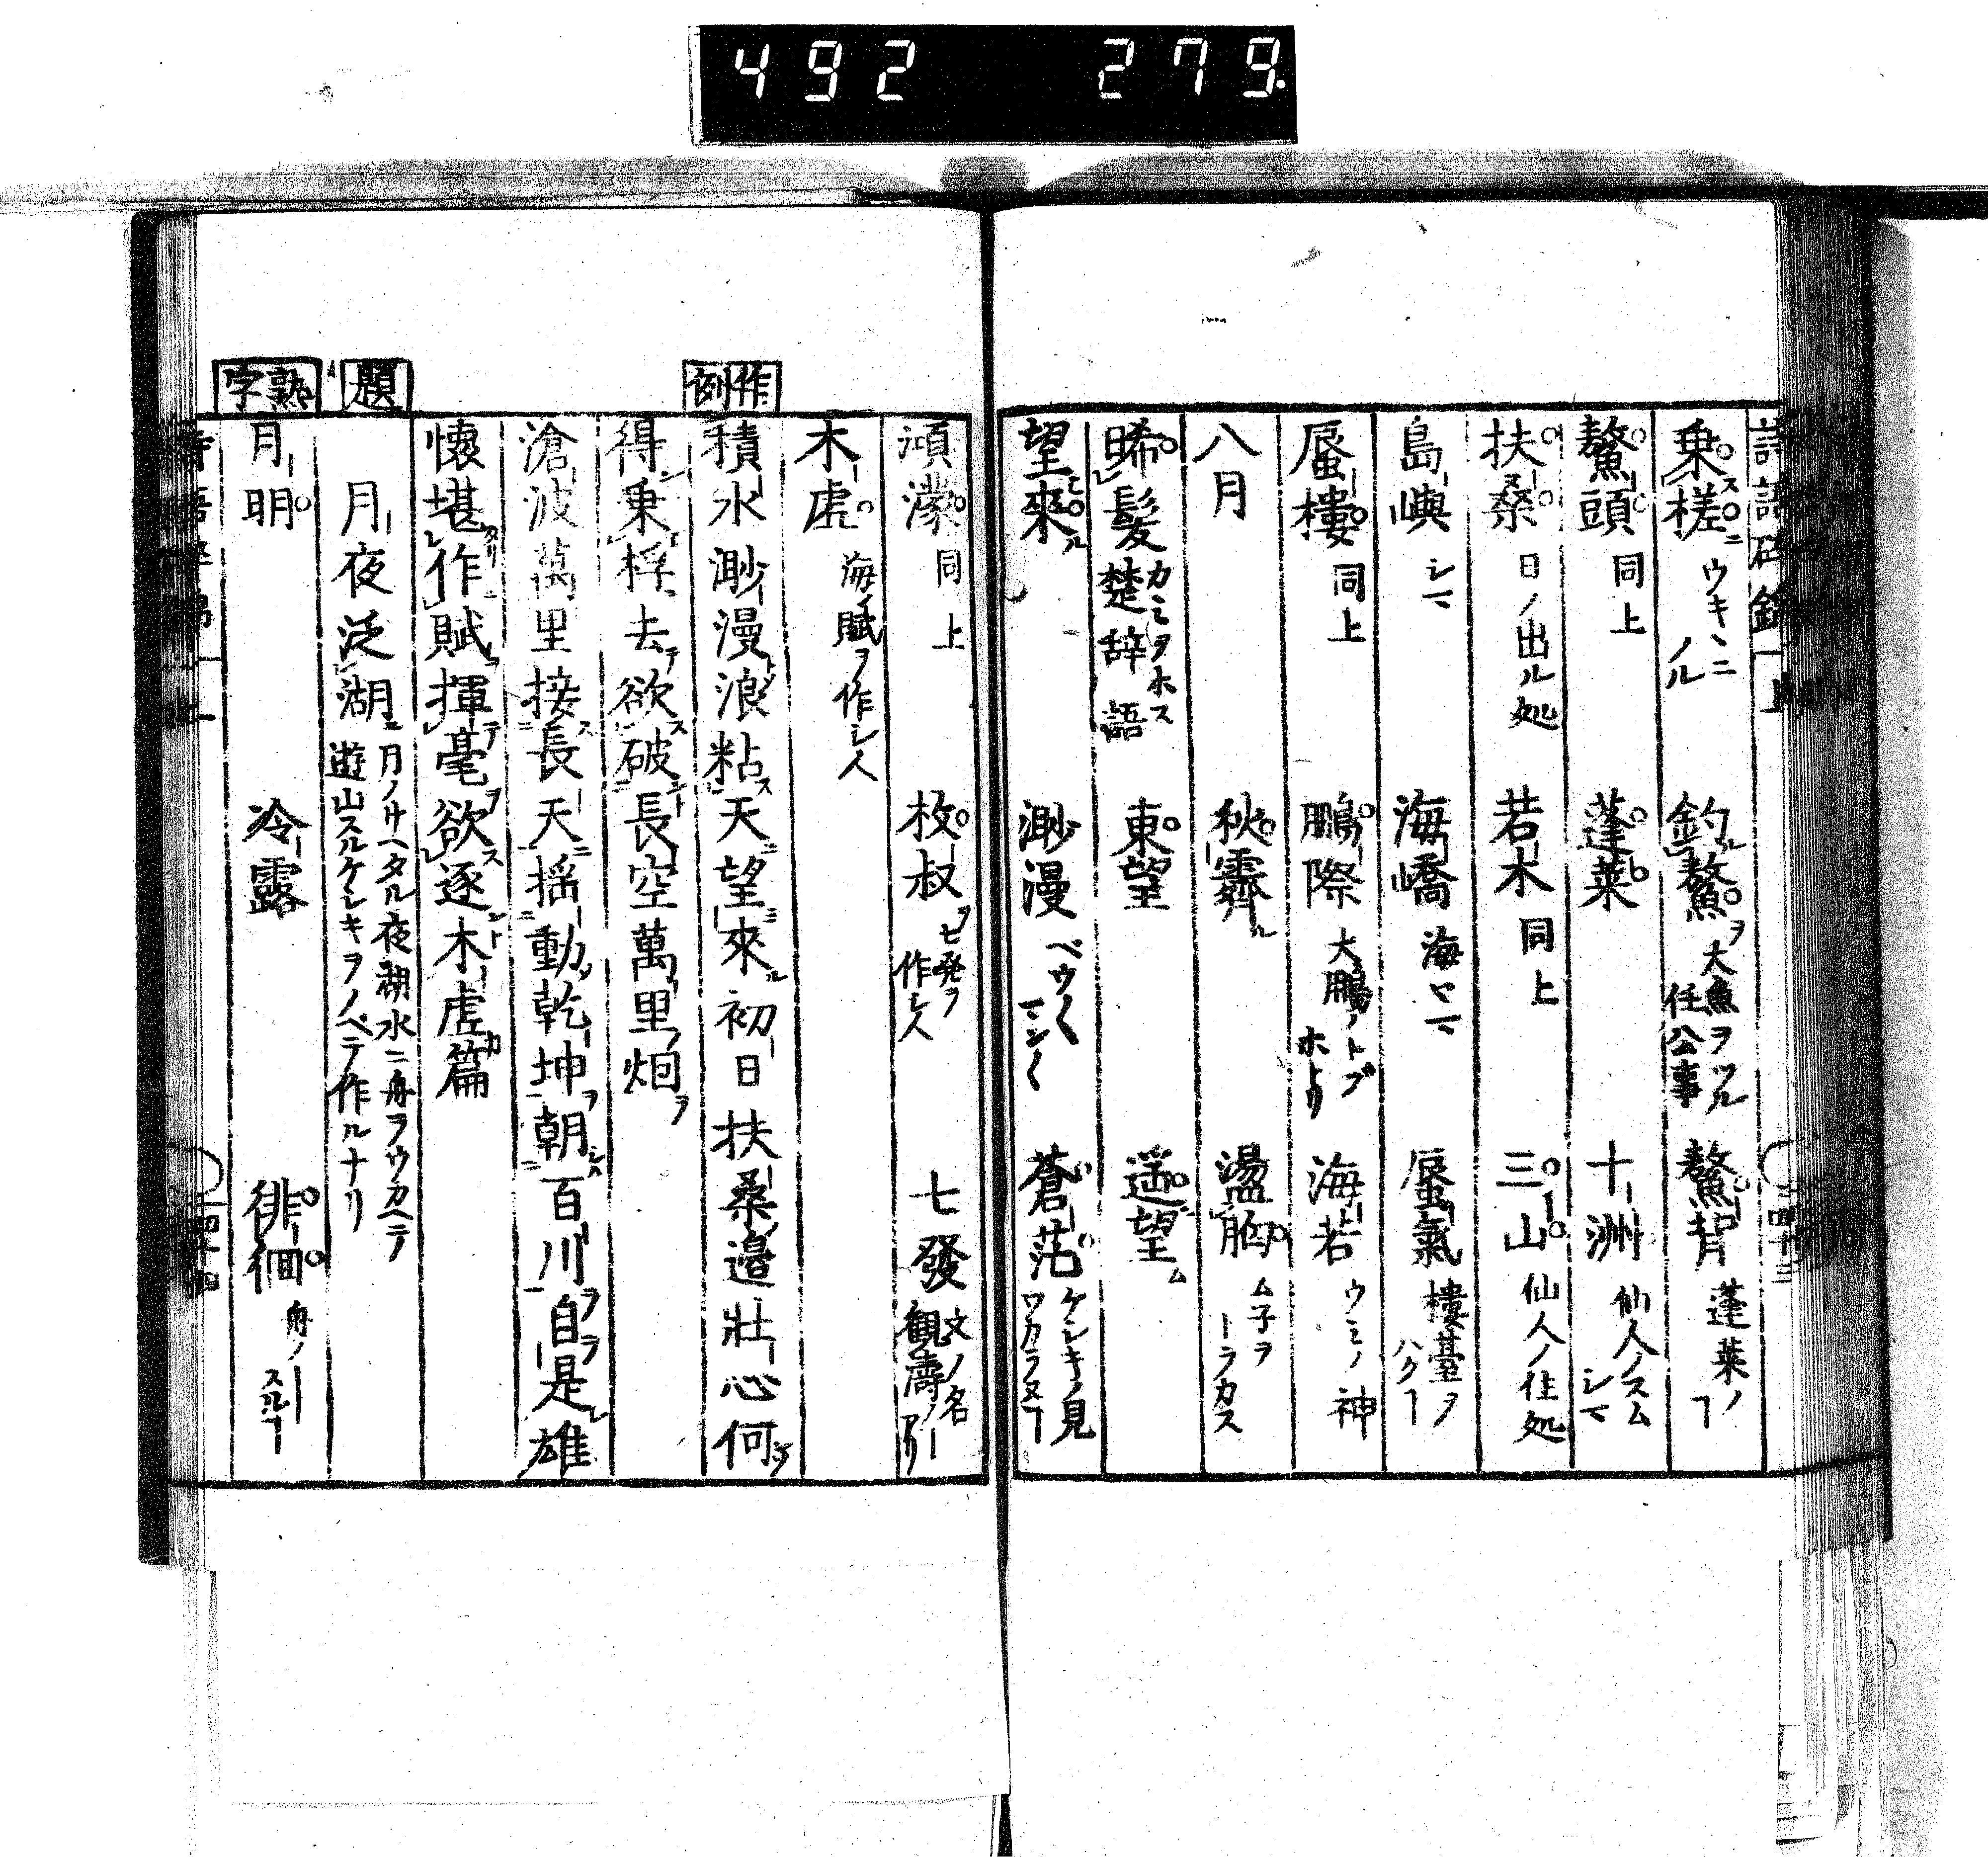 492 279.
乗槎 ウキヽニノル 釣鰲 大魚ヲツル任公事 鰲背 蓬莱ノ
鰲頭 同上 蓬莱 十洲 仙人ノスムシマ
扶桑 日ノ出ル処 若木 同上 三山 仙人ノ住処
島嶼 シマ 海嶠 海ヤマ 蜃氣 樓臺ヲハクヿ
蜃樓 同上 鵬際 大鵬ノトブホトリ 海若 ウミノ神
八月 秋霽 盪胸 ム子ヲトラカス
晞髪 カミヲホス楚辞語 東望 遥望
望來 渺漫 ベウ〱マン〱 蒼茫 ケシキノ見ワカラヌヿ
澒濛 同上 枚叔 七発ヲ作シ人 七發 文ノ名観濤ノ
木虚 海ノ賦ヲ作シ人
作例
積水渺漫浪粘天望來初日扶桑邉壮心何
得乗桴去欲破長空萬里烟
滄波萬里接長天揺動乾坤朝百川自是雄
懐堪作賦揮毫欲逐木虚篇
題
月夜泛湖 月ノサヘタル夜湖水ニ舟ヲウカベテ遊山スルケシキヲノベテ作ルナリ
熟字
月明 冷露 徘徊 舟ノ